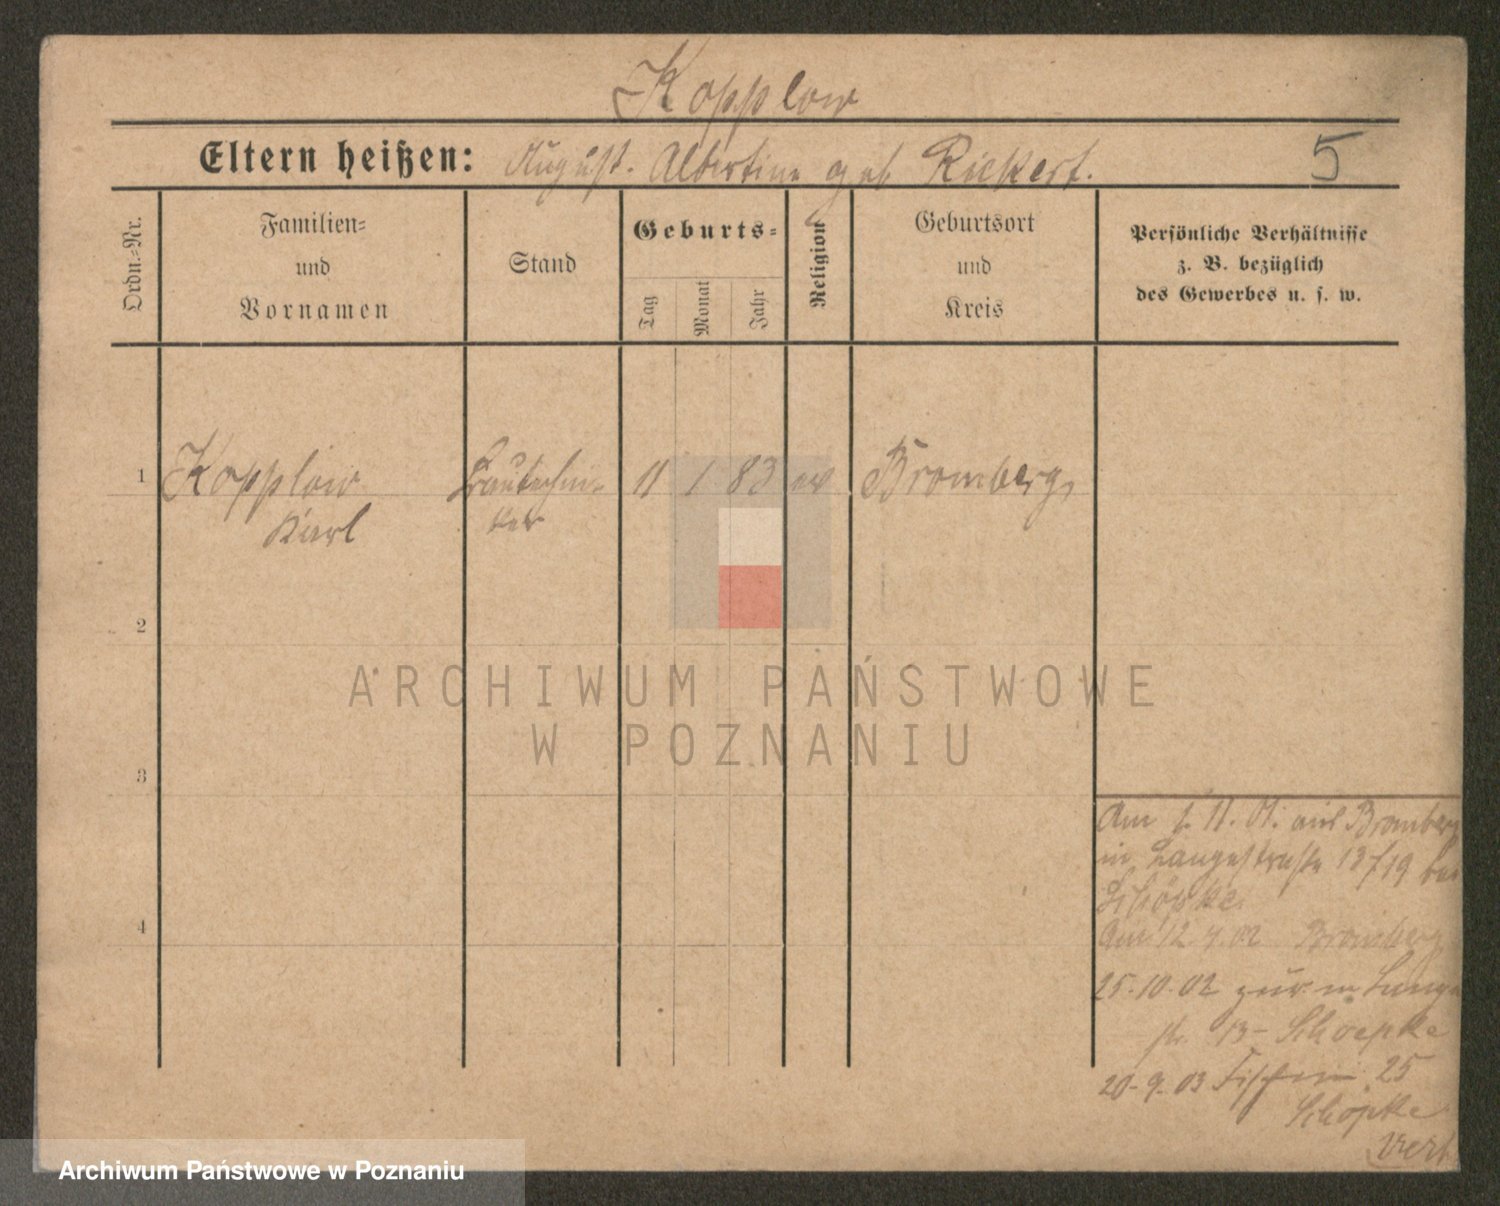 Kopplow
Eltern heißen: August. Albertine geb Riekert.
5
Ordn.-Nr.
Familien-
und
Vornamen
Stand
Geburts-
Tag
Monat
Jahr
Religion
Geburtsort
und
Kreis
Persönliche Verhältnisse
z. B. bezüglich
des Gewerbes u. s. w.
1
Kopplow
Karl
Bautechni-
ker
11 1 83 ev
Bromberg
2
3
4
Am 1. 11. 01. aus Bromberg
in Langestraße 13/19 bei
Schöpke
Am 12. 4. 02 Bromberg
25.10.02 zur in Lange
str. 13 - Schoepke
20-9.03 25
Schöpke
ARCHIWUM PAŃSTWOWE
W POZNANIU
Archiwum Państwowe w Poznaniu